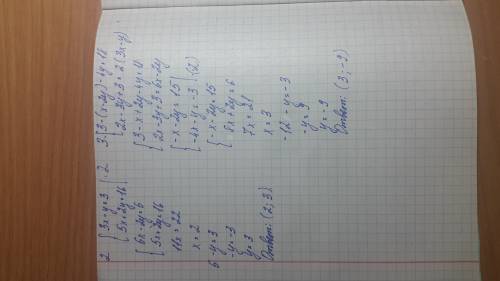 2 { 3x-y=3 | ·2
5x+2y=16
{ 6x-2y=6
5x+2y=16
11x=22
x=2
6-y=3
-y=-3
y=3
Ответ: (2;3)
3. { 3-(x-2y)-4y=18
2x-3y+3=2(3x-y)
{ 3-x+2y-4y=18
2x-3y+3=6x-2y
{ -x-2y=15
-4x-y=-3 | ·(2)
{ -x-2y=15
8x+2y=6
7x=21
x=3
-12-y=-3
-y=9
y=-9
Ответ: (3;-9)